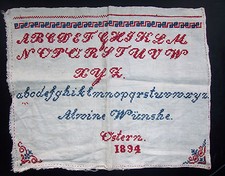 A B C D E F G H I K L M
N O P Q R S T U V W
X Y Z
a b c d e f g h i j k l m n o p q r s t u v w x y z
Alwine Wünshe.
Ostern.
1894